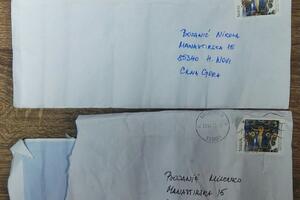 BOJANIĆ NIKOLA
MANASTIRSKA 15
85340 H. NOVI
CRNA GORA
BOJANIĆ MILENKO
MANASTIRSKA 15